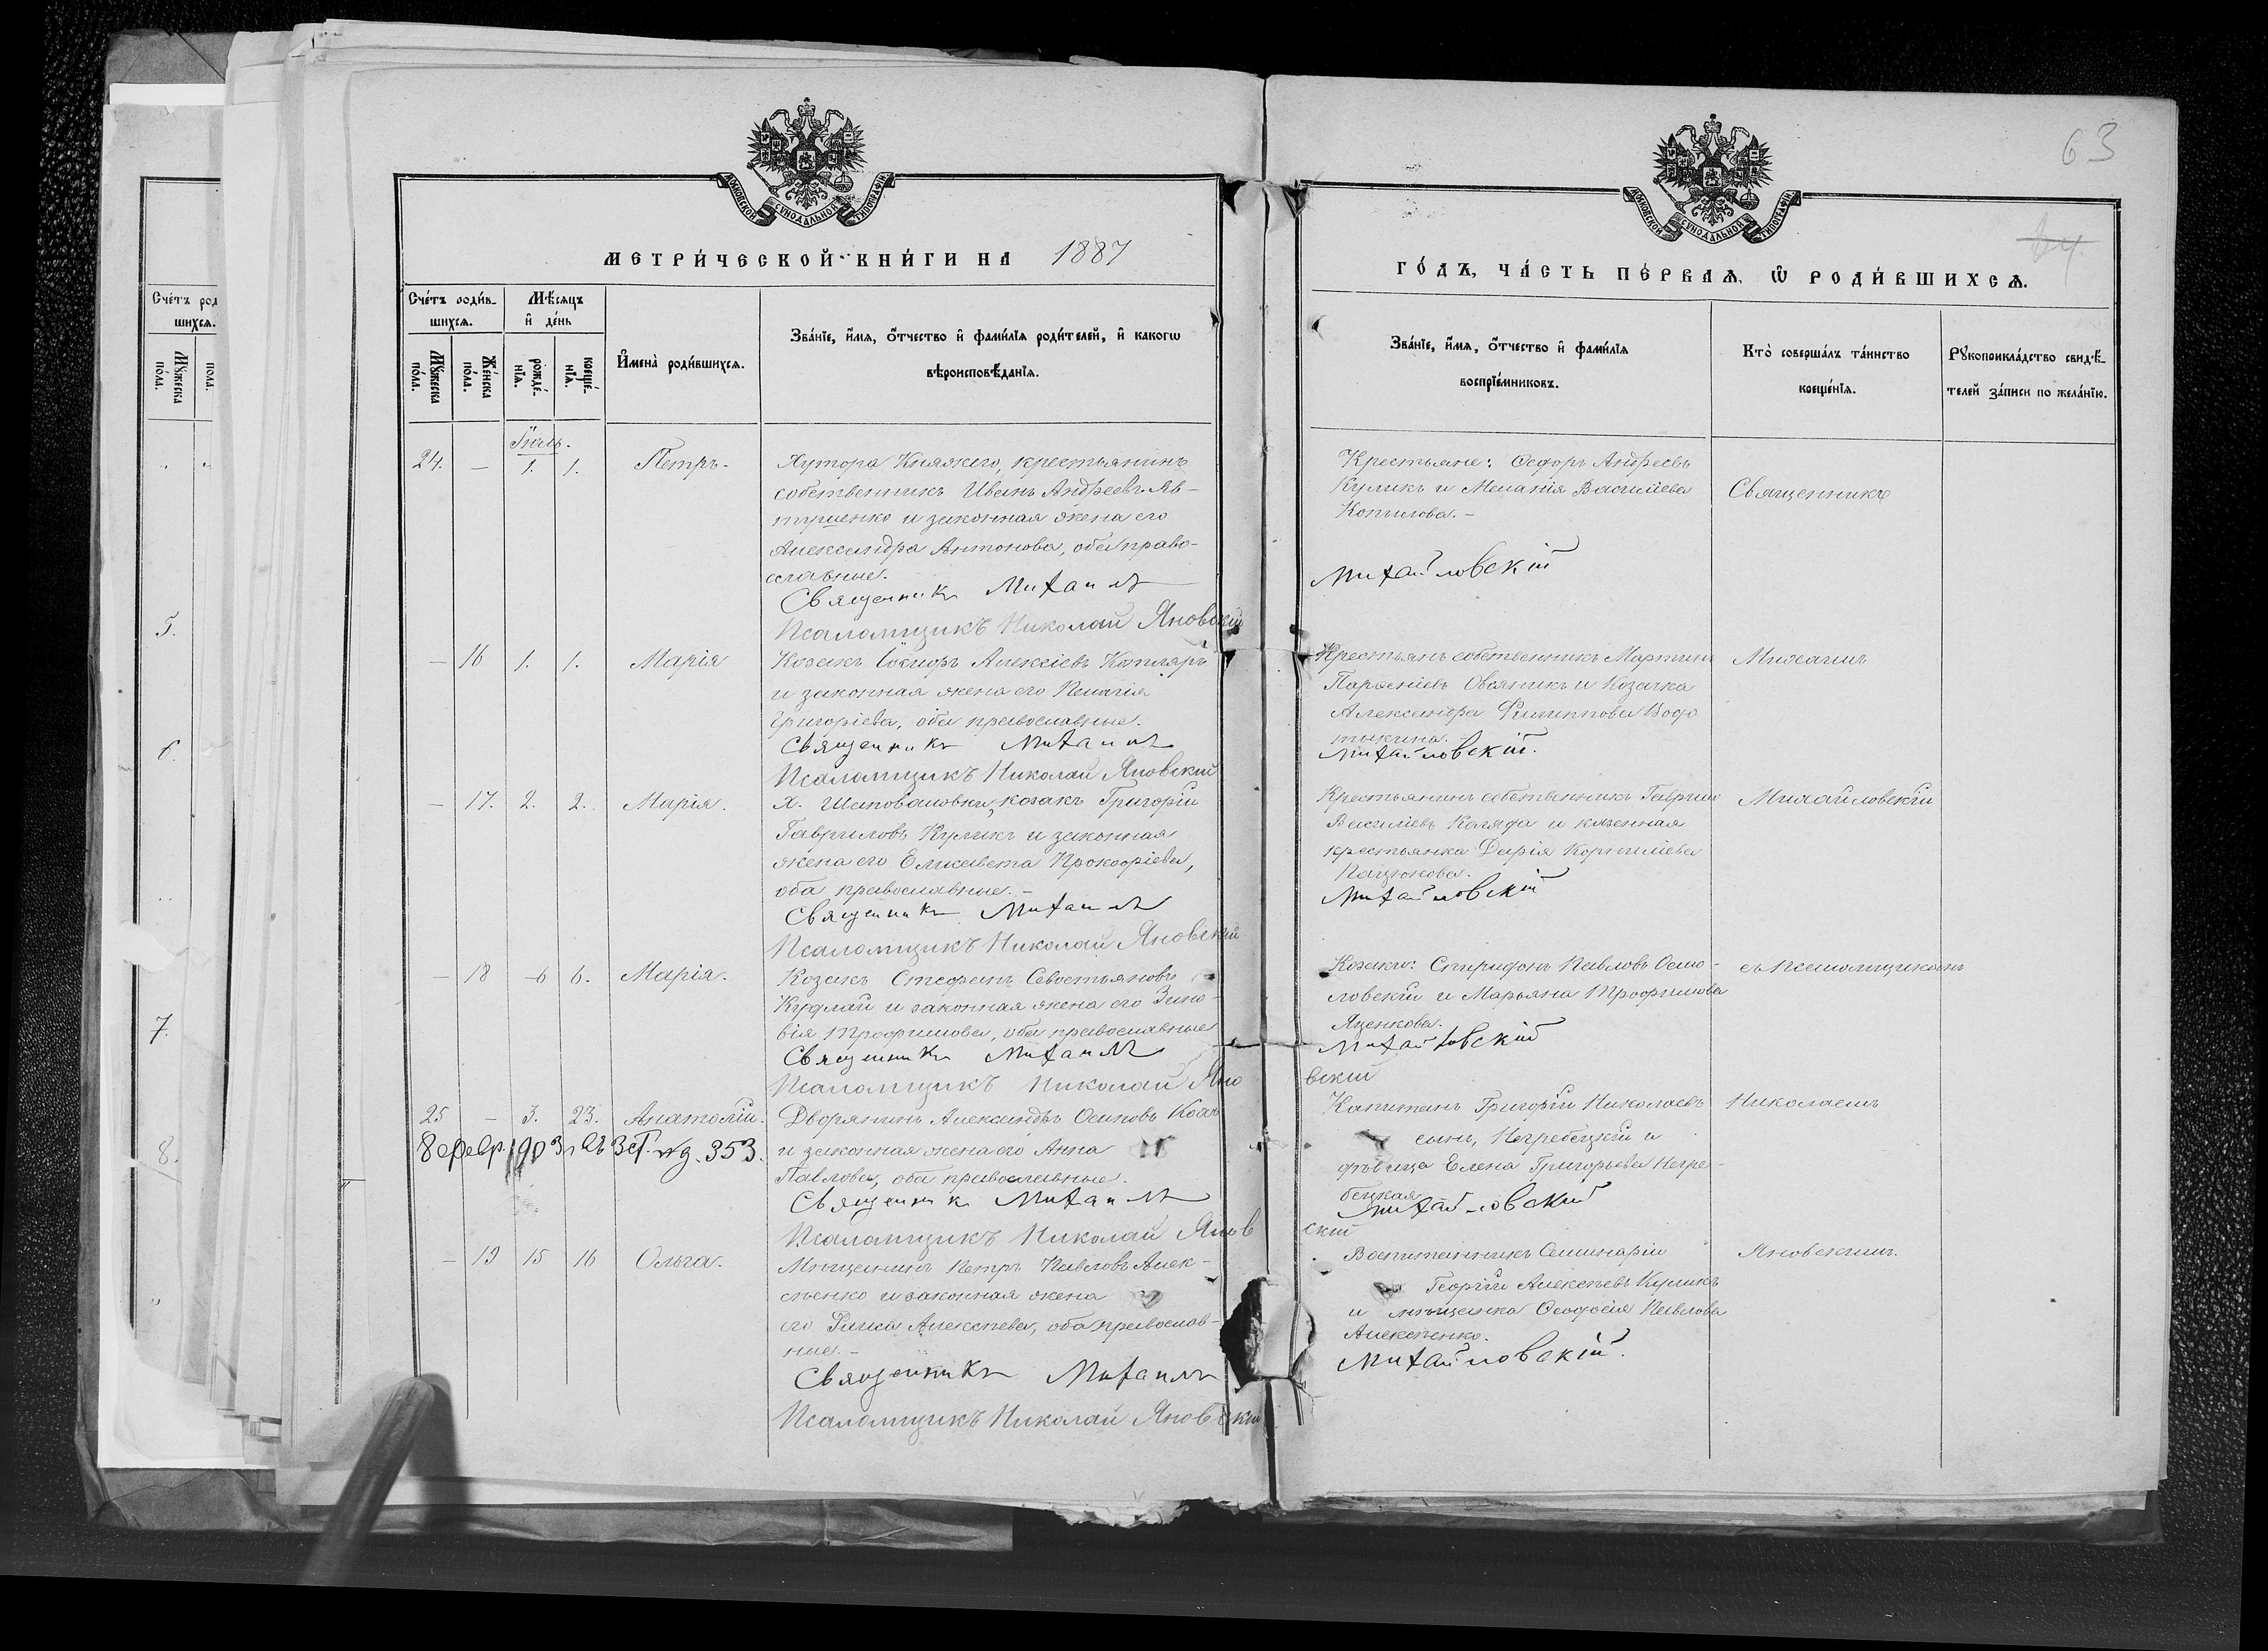 63
64
МОСКОВСКОЙ СѴНОДАЛЬНОЙ ТИПОГРАФІИ
МЕТРИ́ЧЕСКОЙ КНИ́ГИ НА 1887
Сче́тъ роди́в-
шихсѧ.
Мꙋ́жеска
по́ла.
Же́нска
по́ла.
Мѣ́сѧцъ
и҆ де́нь
рожде́-
нїѧ.
креще́-
нїѧ.
И҆мена̀ роди́вшихсѧ.
Зва́нїе, и҆́мѧ, ѻ҆́тчество и҆ фами́лїѧ роди́телей, и҆ какогѡ
вѣроисповѣ́данїѧ.
Іюль.
24. — 1. 1. Петръ.
Хутора Княжего, крестьянинъ
собственникъ Иванъ Андреевъ Яв-
тушенко и законная жена его
Александра Антонова, оба право-
славные.
Священникъ Михаилъ
Псаломщикъ Николай Яновскій
— 16 1. 1. Марія
Козакъ Алексіевъ Котляръ
и законная жена его Пелагія
Григоріева, оба православные.
Священникъ Михаилъ
Псаломщикъ Николай Яновскій
— 17. 2. 2. Марія.
х. Шаповаловки, козакъ Григорій
Гавриловъ Куликъ и законная
жена его Елисавета Прокофіева,
оба православные. —
Священникъ Михаилъ
Псаломщикъ Николай Яновскій
— 18 6 6. Марія.
Козакъ Стефанъ Севостьяновъ
Кудлай и законная жена его Зино-
вія Трофимова, оба православные
Священникъ Михаилъ
Псаломщикъ Николай Яно
25 — 3. 23. Анатолій.
Дворянинъ Александръ Осиповъ
8 февр. 1903 г. въ 3 ст. 353.
и законная жена его Анна
Павлова, оба православные.
Священникъ Михаилъ
Псаломщикъ Николай Янов
— 19 15 16 Ольга.
Мѣщанинъ Петръ Павловъ Алек-
сѣенко и законная жена
его Раиса Алексѣева, оба православ-
ные. —
Священникъ Михаилъ
Псаломщикъ Николай Яновскій
МОСКОВСКОЙ СѴНОДАЛЬНОЙ ТИПОГРАФІИ
ГО́ДЪ, ЧА́СТЬ ПЕ́РВАѦ, Ѡ҆ РОДИ́ВШИХСѦ.
Зва́нїе, и҆́мѧ, ѻ҆́тчество и҆ фами́лїѧ
воспрїе́мниковъ.
Кто̀ соверша́лъ та́инство
креще́нїѧ.
Рꙋкоприкла́дство свидѣ́-
телей за́писи по жела́нїю.
Крестьяне: Ѳедоръ Андреевъ
Куликъ и Меланія Василіева
Копылова. —
Священникъ
Михайловскій
Крестьянъ собственникъ Мартинъ
Парѳеніевъ Овсяникъ и Козачка
Александра Филиппова Водо
тыкина. —
Михаилъ
Михайловскій.
Крестьянинъ собственникъ Гаврило
Василіевъ Коляда и казенная
крестьянка Дарія Корниліева
Пацюкова.
Михайловскій
Михайловскій
Козаки: Спиридонъ Павловъ Осмо-
ловскій и Марьяна Трофимова
Яценкова.
съ Псаломщикомъ
Михайловскій
вскій
Капитанъ Григорій Николаевъ
сынъ, Негребецкій и
дѣвица Елена Григорьева Негре-
бецкая
Николаемъ
Михайловскій
скій
Воспитанникъ Семинаріи
Георгій Алексѣевъ Куликъ
и мѣщанка Ѳеодосія Павлова
Алексѣенко.
Яновскимъ.
Михайловскій.
Сче́тъ род
шихсѧ.
Мꙋ́жеска
по́ла.
по́ла.
5.
6.
7.
8.